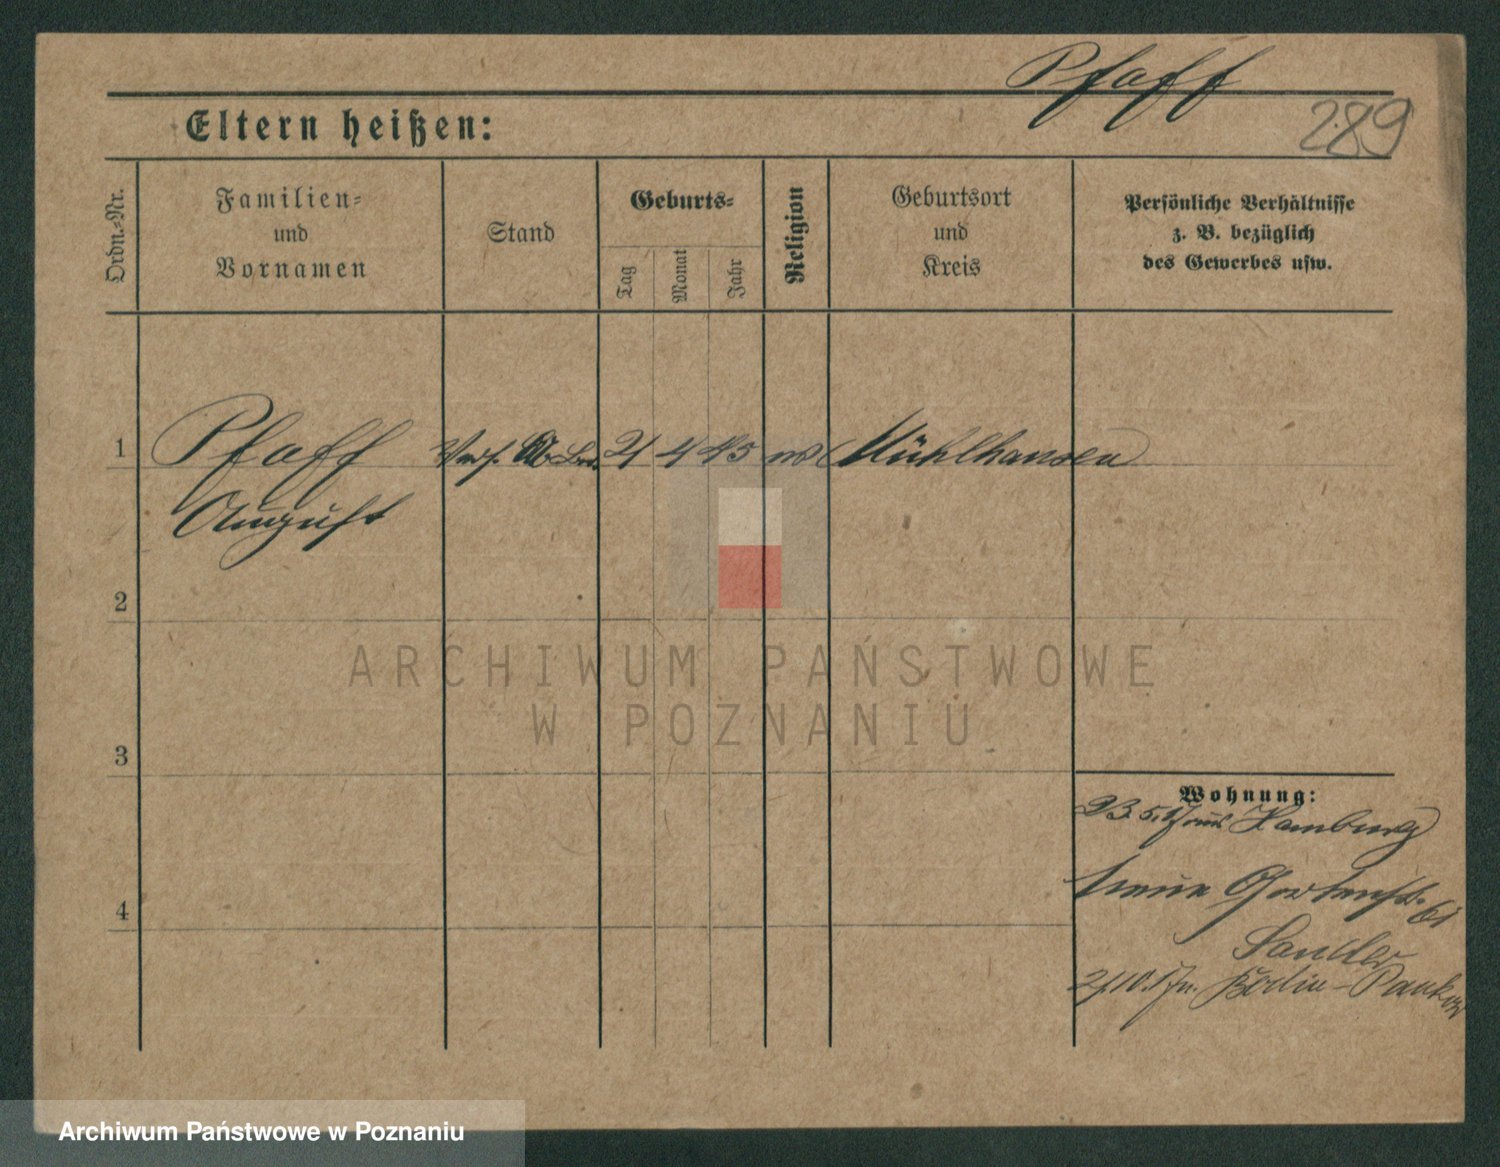 Pfaff
289
Eltern heißen:
Ordn.-Nr.
Familien-
und
Vornamen
Stand
Geburts-
Tag
Monat
Jahr
Religion
Geburtsort
und
Kreis
Persönliche Verhältnisse
z. B. bezüglich
des Gewerbes usw.
1
Pfaff
August
Mühlhausen
2
3
4
Wohnung:
Hamburg
Neue Gartenstr. 61
Sander
Berlin-Pankow
ARCHIWUM PAŃSTWOWE
W POZNANIU
Archiwum Państwowe w Poznaniu